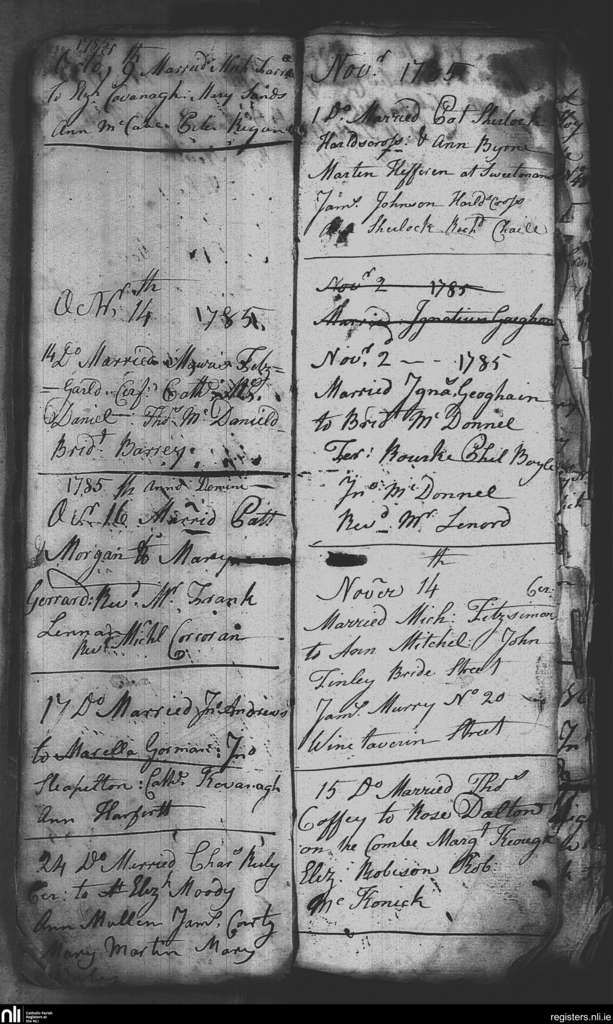 1785
9th Married
To Eliz: Cavanagh: Mary Sands
Ann McCabe Peter Regan
Octbr 14th 1785
14 Do Married Fitz-
=Gerald
Daniel Thos. McDanield
Bridt Barrey
1785 th Anno Domini
Octr 16 Married Patt
Morgan to Mary
Gerrard: Revd Mr Frank
Lennan
Revd Michl Corcoran
17 Do Married Jno Andrews
to Marella Gorman: Jno
Sleapelton: Cathn Kavanagh
Ann Harfortt
24 Do Married Chars Riely
Cer: to Elizh Moody
Ann Mullen Jams
Mary Martin Mary
Novr 1785
1 Do Married Pat Sherlock
Hardscrops: & Ann Byrne
Marten Hefferen at Sweetmans
Jams. Johnson Hardscrops
Sherlock Richd
Novr 2 1785
Married Ignatius Goeghan
Novr. 2 -- 1785
Married Ignas Geoghain
to Bridt McDonnel
Fer: Rourke Phil Boyle
Jno McDonnel
Revd. Mr Lenord
Nover 14th Cer:
Married Mich: Fitzsimon
to Ann Mitchel: John
Finley Bride Street
Jams. Murry No 20
Winetavern Street
15 Do Married Thos
Coffey to Rose Dalton
on the Combe Margt Keough
Eliz: Robison Rob
McKonick
nli
Catholic Parish
Registers at
the NLI
registers.nli.ie